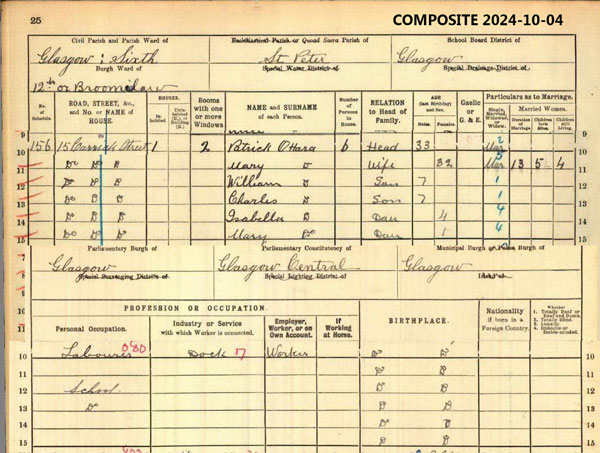 25
COMPOSITE 2024-10-04
Civil Parish and Parish Ward of
Ecclesiastical Parish or Quoad Sacra Parish of
School Board District of
Glasgow : Sixth
St Peter
Glasgow
Burgh Ward of
Special Water District of
Special Drainage District of
12th or Broomielaw
No. of Schedule.
ROAD, STREET, &c., and No. or NAME of HOUSE.
HOUSES.
Inhabited.
Rooms with one or more Windows.
NAME and SURNAME of each Person.
Number of Persons in House.
RELATION to Head of Family.
AGE (last Birthday) and Sex.
Males. Females.
Gaelic or G. & E.
Particulars as to Marriage.
Single, Married, Widower, or Widow.
Married Women.
Duration of Marriage
Children born Alive.
Children still Living.
9 9
10 156 15 Carrick Street 1 2 Patrick O'Hara 6 Head 33 Mar 10
11 Do Do Do Mary Do Wife 32 Mar 13 5 4 11
12 Do Do Do William Do Son 7 12
13 Do Do Do Charles Do Son 7 13
14 Do Do Do Isabella Do Dau 4 14
15 Do Do Do Mary Do Dau 1 15
Parliamentary Burgh of
Parliamentary Constituency of
Municipal Burgh or Police Burgh of
Glasgow
Glasgow Central
Glasgow
Special Scavenging District of
Special Lighting District of
Island of
PROFESSION OR OCCUPATION.
Personal Occupation.
Industry or Service with which Worker is connected.
Employer, Worker, or on Own Account.
If Working at Home.
BIRTHPLACE.
Nationality if born in a Foreign Country.
Whether
1. Totally Deaf or Deaf and Dumb.
2. Totally Blind.
3. Lunatic.
4. Imbecile or Feeble-minded.
10 Labourer 080 Dock 17 Worker Do Do 10
11 Do Do 11
12 School Do Do 12
13 Do Do Do 13
14 Do Do 14
15 Do Do 15